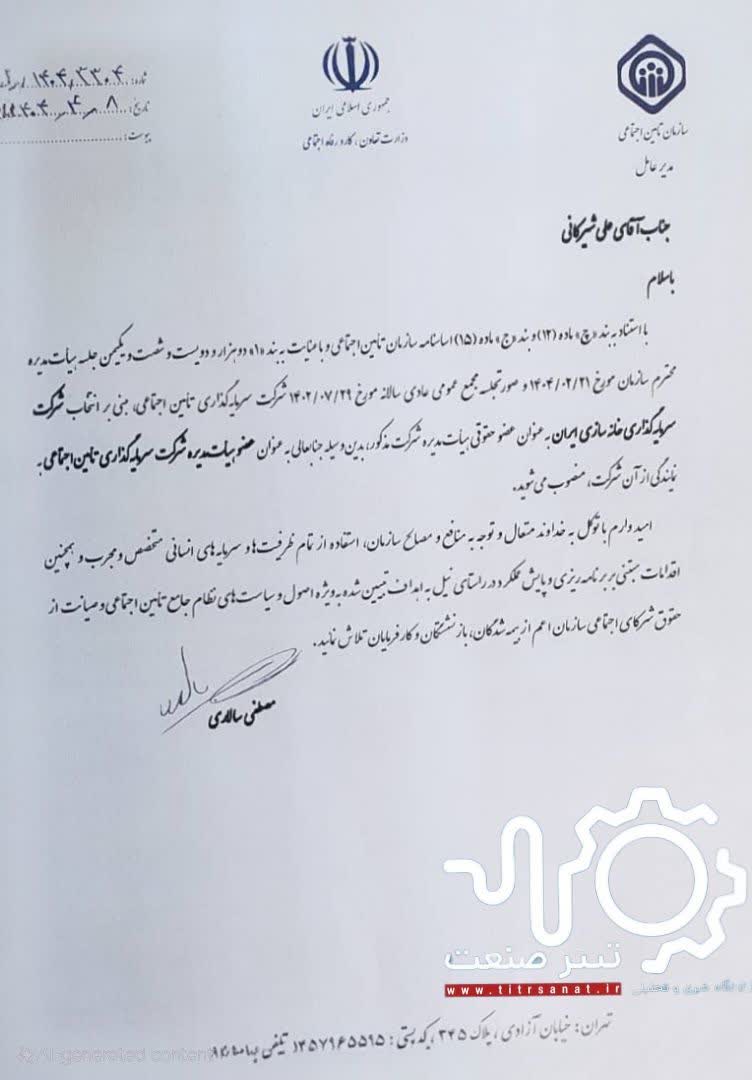 جمهوری اسلامی ایران
وزارت تعاون، کار و رفاه اجتماعی
سازمان تأمین اجتماعی
مدیر عامل
شماره:
تاریخ:
پیوست:
جناب آقای علی شیرکانی
باسلام
با استناد به بند «چ» ماده (۱۲) و بند «ج» ماده (۱۵) اساسنامه سازمان تأمین اجتماعی و با عنایت به بند «۱» دو هزار و دویست و شصت و یکمین جلسه هیأت مدیره
محترم سازمان مورخ ۱۴۰۴/۰۲/۲۱ و صورتجلسه مجمع عمومی عادی سالانه مورخ ۱۴۰۲/۰۷/۲۹ شرکت سرمایه گذاری تأمین اجتماعی، مبنی بر انتخاب شرکت
سرمایه گذاری خانه سازی ایران به عنوان عضو حقوقی هیأت مدیره شرکت مذکور، بدین وسیله جنابعالی به عنوان عضو هیأت مدیره شرکت سرمایه گذاری تأمین اجتماعی به
نمایندگی از آن شرکت، منصوب می شوید.
امید وارم با توکل به خداوند متعال و توجه به منافع و مصالح سازمان، استفاده از تمام ظرفیت ها و سرمایه های انسانی متخصص و مجرب و همچنین
اقدامات مبتنی بر برنامه ریزی و پایش عملکرد در راستای نیل به اهداف تبیین شده به ویژه اصول و سیاست های نظام جامع تأمین اجتماعی و صیانت از
حقوق شرکای اجتماعی سازمان اعم از بیمه شدگان، بازنشستگان و کارفرمایان تلاش نمائید.
مصطفی سالاری
تیتر صنعت
www.titrsanat.ir
تهران: خیابان آزادی، پلاک ۳۴۵، کد پستی: ۱۴۵۷۹۶۵۵۹۵ تلفن
AI-generated content